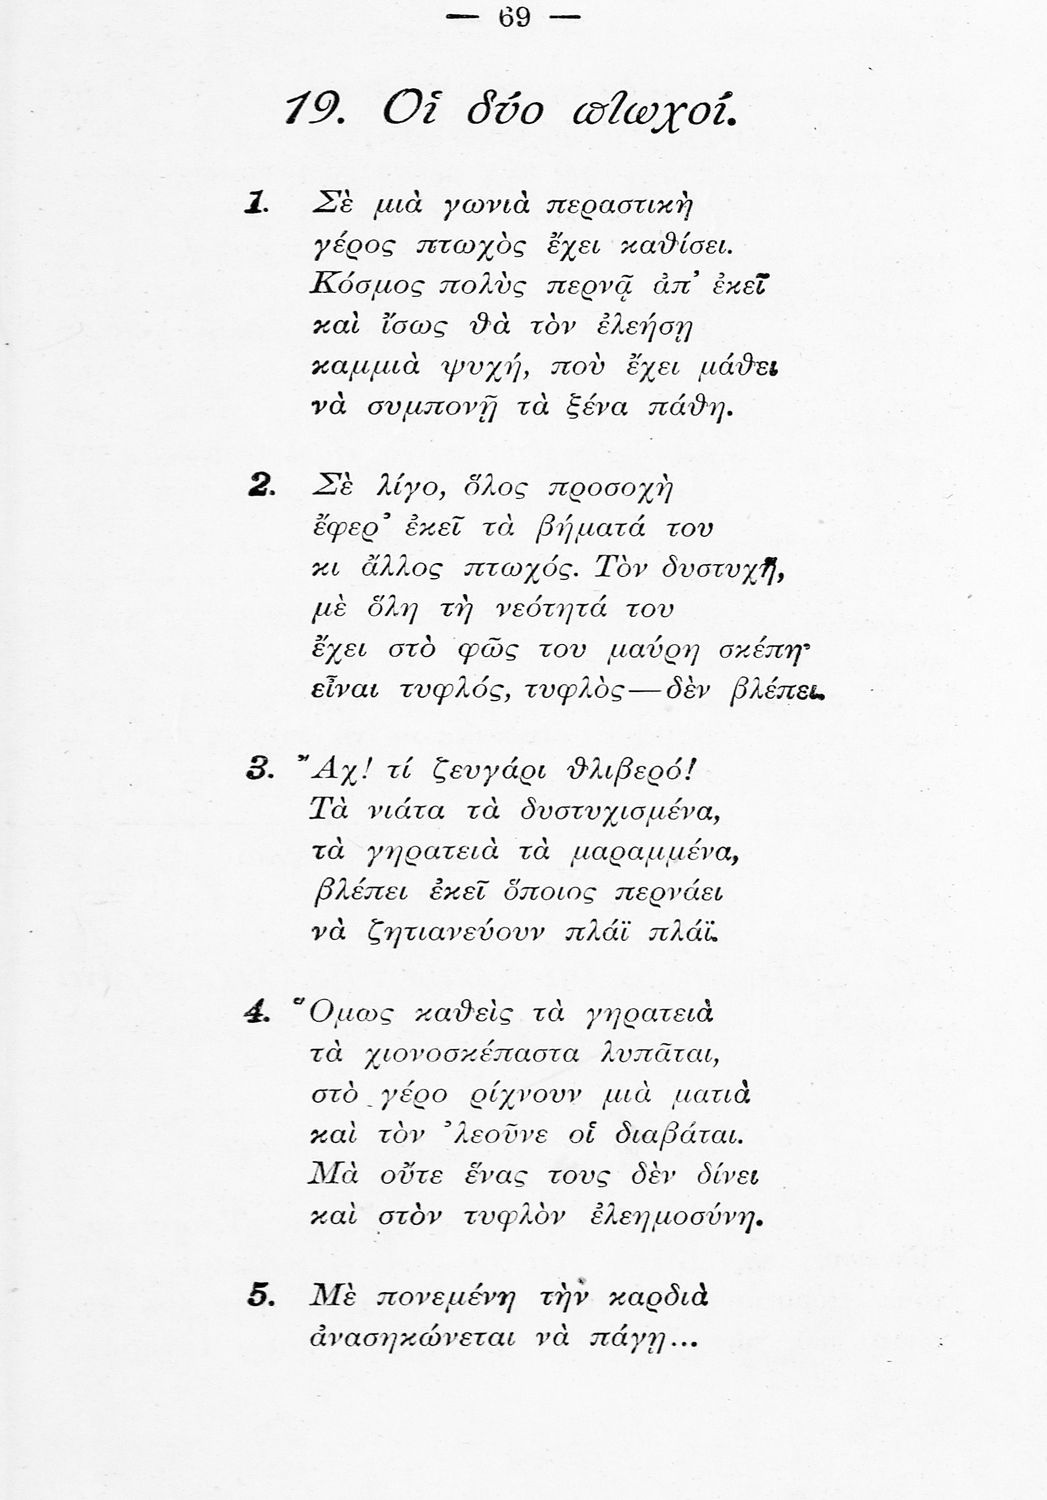 — 69 —
19. Οἱ δύο πτωχοί.
1. Σὲ μιὰ γωνιὰ περαστικὴ
γέρος πτωχὸς ἔχει καθίσει.
Κόσμος πολὺς περνᾷ ἀπ’ ἐκεῖ
καὶ ἴσως θὰ τὸν ἐλεήσῃ
καμμιὰ ψυχή, ποὺ ἔχει μάθει
νὰ συμπονῇ τὰ ξένα πάθη.
2. Σὲ λίγο, ὅλος προσοχὴ
ἔφερ’ ἐκεῖ τὰ βήματά του
κι ἄλλος πτωχός. Τὸν δυστυχῆ,
μὲ ὅλη τὴ νεότητά του
ἔχει στὸ φῶς του μαύρη σκέπη·
εἶναι τυφλός, τυφλὸς—δὲν βλέπει.
3. Ἄχ! τί ζευγάρι θλιβερό!
Τὰ νιάτα τὰ δυστυχισμένα,
τὰ γηρατειὰ τὰ μαραμμένα,
βλέπει ἐκεῖ ὅποιος περνάει
νὰ ζητιανεύουν πλάϊ πλάϊ.
4. Ὅμως καθεὶς τὰ γηρατειὰ
τὰ χιονοσκέπαστα λυπᾶται,
στὸ γέρο ρίχνουν μιὰ ματιὰ
καὶ τὸν ’λεοῦνε οἱ διαβάται.
Μὰ οὔτε ἕνας τους δὲν δίνει
καὶ στὸν τυφλὸν ἐλεημοσύνη.
5. Μὲ πονεμένη τὴν καρδιὰ
ἀνασηκώνεται νὰ πάγῃ...